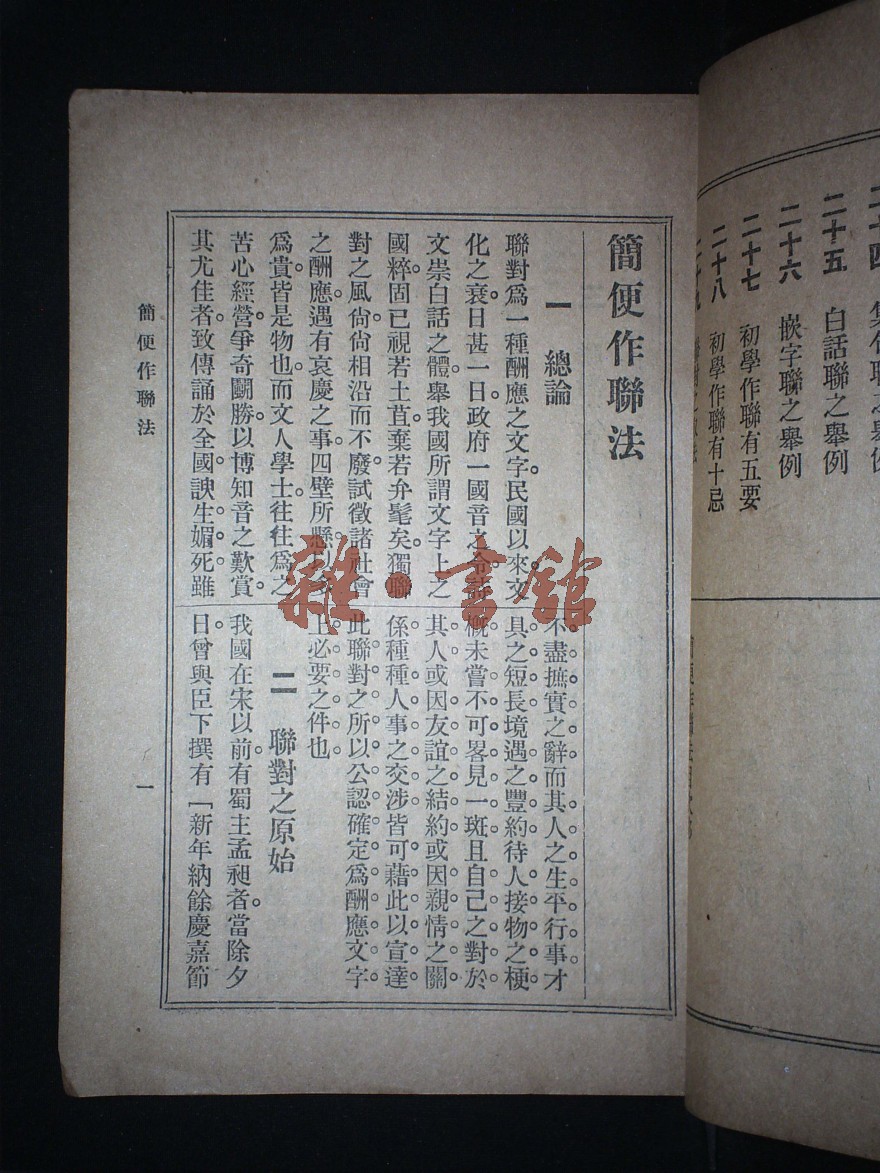 二十五 白話聯之舉例
二十六 嵌字聯之舉例
二十七 初學作聯有五要
二十八 初學作聯有十忌
簡便作聯法
一 總論
聯對爲一種酬應之文字。民國以來文
化之衰日甚一日政府一國音之令
文崇白話之體。舉我國所謂文字上之
國粹固已視若土苴棄若弁髦矣。獨聯
對之風尙尙相沿而不廢試徵諸社會
之酬應。遇有哀慶之事。四壁所懸
爲貴皆是物也。而文人學士。往往爲之
苦心經營。爭奇鬭勝。以博知音之歎賞。
其尤佳者。致傳誦於全國。諛生媚死。雖
不盡摭實之辭而其人之生平行事才
具之短長境遇之豐約待人接物之梗
概未嘗不可畧見一斑且自己之對於
其人或因友誼之結約或因親情之關
係種種人事之交涉皆可藉此以宣達
此聯對之所以公認確定爲酬應文字
上必要之件也
二 聯對之原始
我國在宋以前。有蜀主孟昶者。當除夕
日曾與臣下撰有「新年納餘慶嘉節
簡便作聯法
一
雜·書館